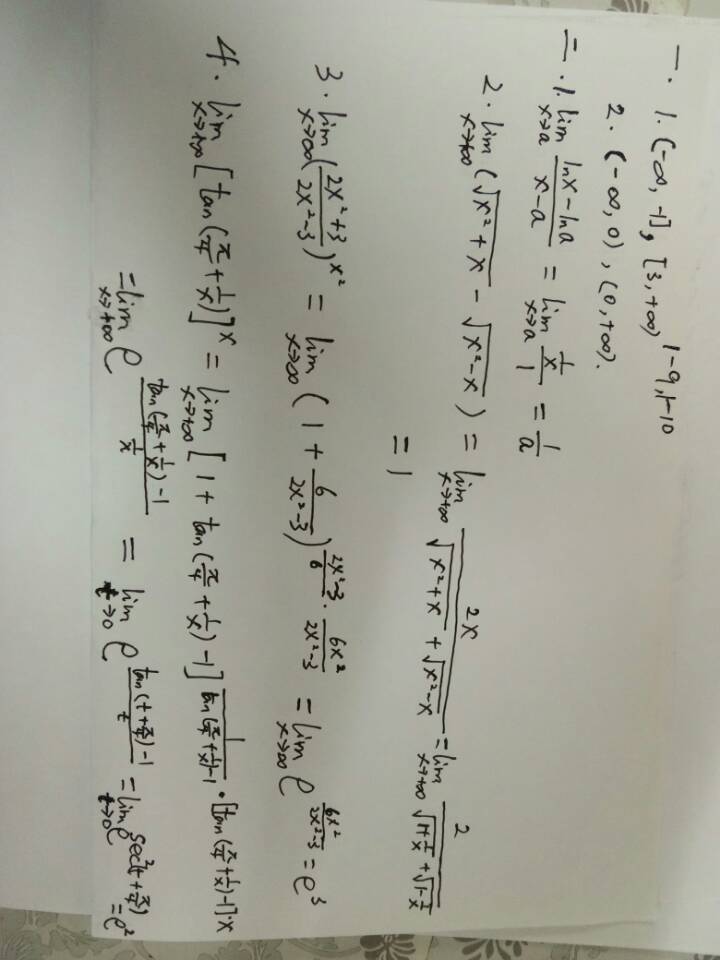 一. 1. (-∞, -1], [3, +∞) 1-9, 1-10
2. (-∞, 0), (0, +∞).
二. 1. lim_{x→a} \frac{lnx-lna}{x-a} = lim_{x→a} \frac{\frac{1}{x}}{1} = \frac{1}{a}
2. lim_{x→+∞} (\sqrt{x²+x} - \sqrt{x²-x}) = lim_{x→+∞} \frac{2x}{\sqrt{x²+x}+\sqrt{x²-x}} = lim_{x→+∞} \frac{2}{\sqrt{1+\frac{1}{x}}+\sqrt{1-\frac{1}{x}}}
= 1
3. lim_{x→∞} (\frac{2x²+3}{2x²-3})^{x²} = lim_{x→∞} (1+\frac{6}{2x²-3})^{\frac{2x²-3}{6}·\frac{6x²}{2x²-3}} = lim_{x→∞} e^{\frac{6x²}{2x²-3}} = e³
4. lim_{x→+∞} [tan(\frac{π}{4}+\frac{1}{x})]^x = lim_{x→+∞} [1+tan(\frac{π}{4}+\frac{1}{x})-1]^{\frac{1}{tan(\frac{π}{4}+\frac{1}{x})-1}·[tan(\frac{π}{4}+\frac{1}{x})-1]·x}
= lim_{x→+∞} e^{\frac{tan(\frac{π}{4}+\frac{1}{x})-1}{\frac{1}{x}}} = lim_{t→0} e^{\frac{tan(t+\frac{π}{4})-1}{t}} = lim_{t→0} e^{sec²(t+\frac{π}{4})} = e²